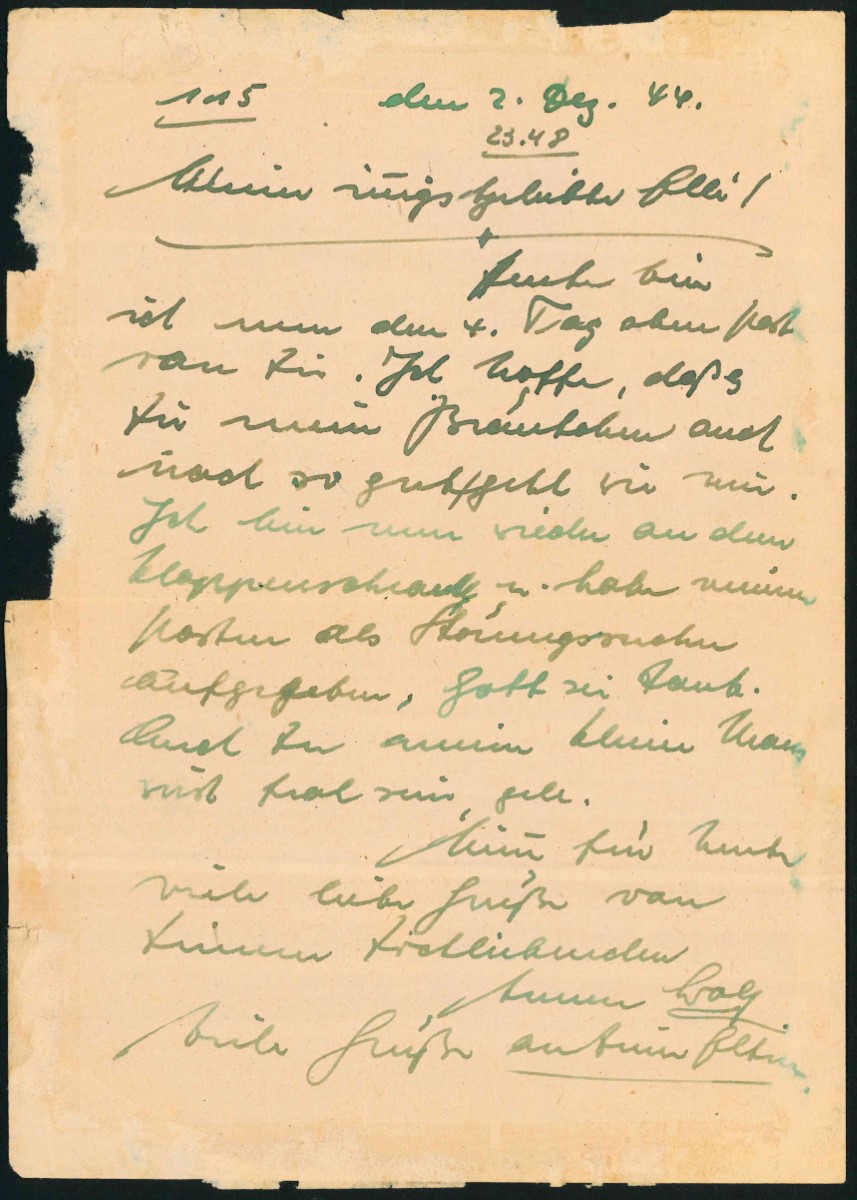 115 den 2. Dez. 44.
23.48
Meine innigstgeliebte Elli!
Heute bin
ich nun den 4. Tag ohne Post
von Dir. Ich hoffe, daß es
Dir mein Bräutchen auch
noch so gut geht wie mir.
Ich bin nun wieder an dem
Klappenschrank u. habe meinen
Posten als Störungssucher
aufgegeben, Gott sei Dank.
Und Du meine kleine Maus
wirst froh sein, gele.
Nun für heute
viele liebe Grüße von
Deinem Dichliebenden
Deinen Wolf
Viele Grüße an Deine Eltern.